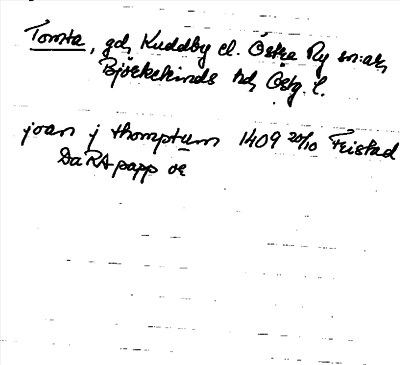 Tomta, gd, Kuddby el. Östra Ny sn:ar,
Björkekinds hd, Östg. l.
joan j thomptum 1409 20/10 Feistad
Da RA papp or